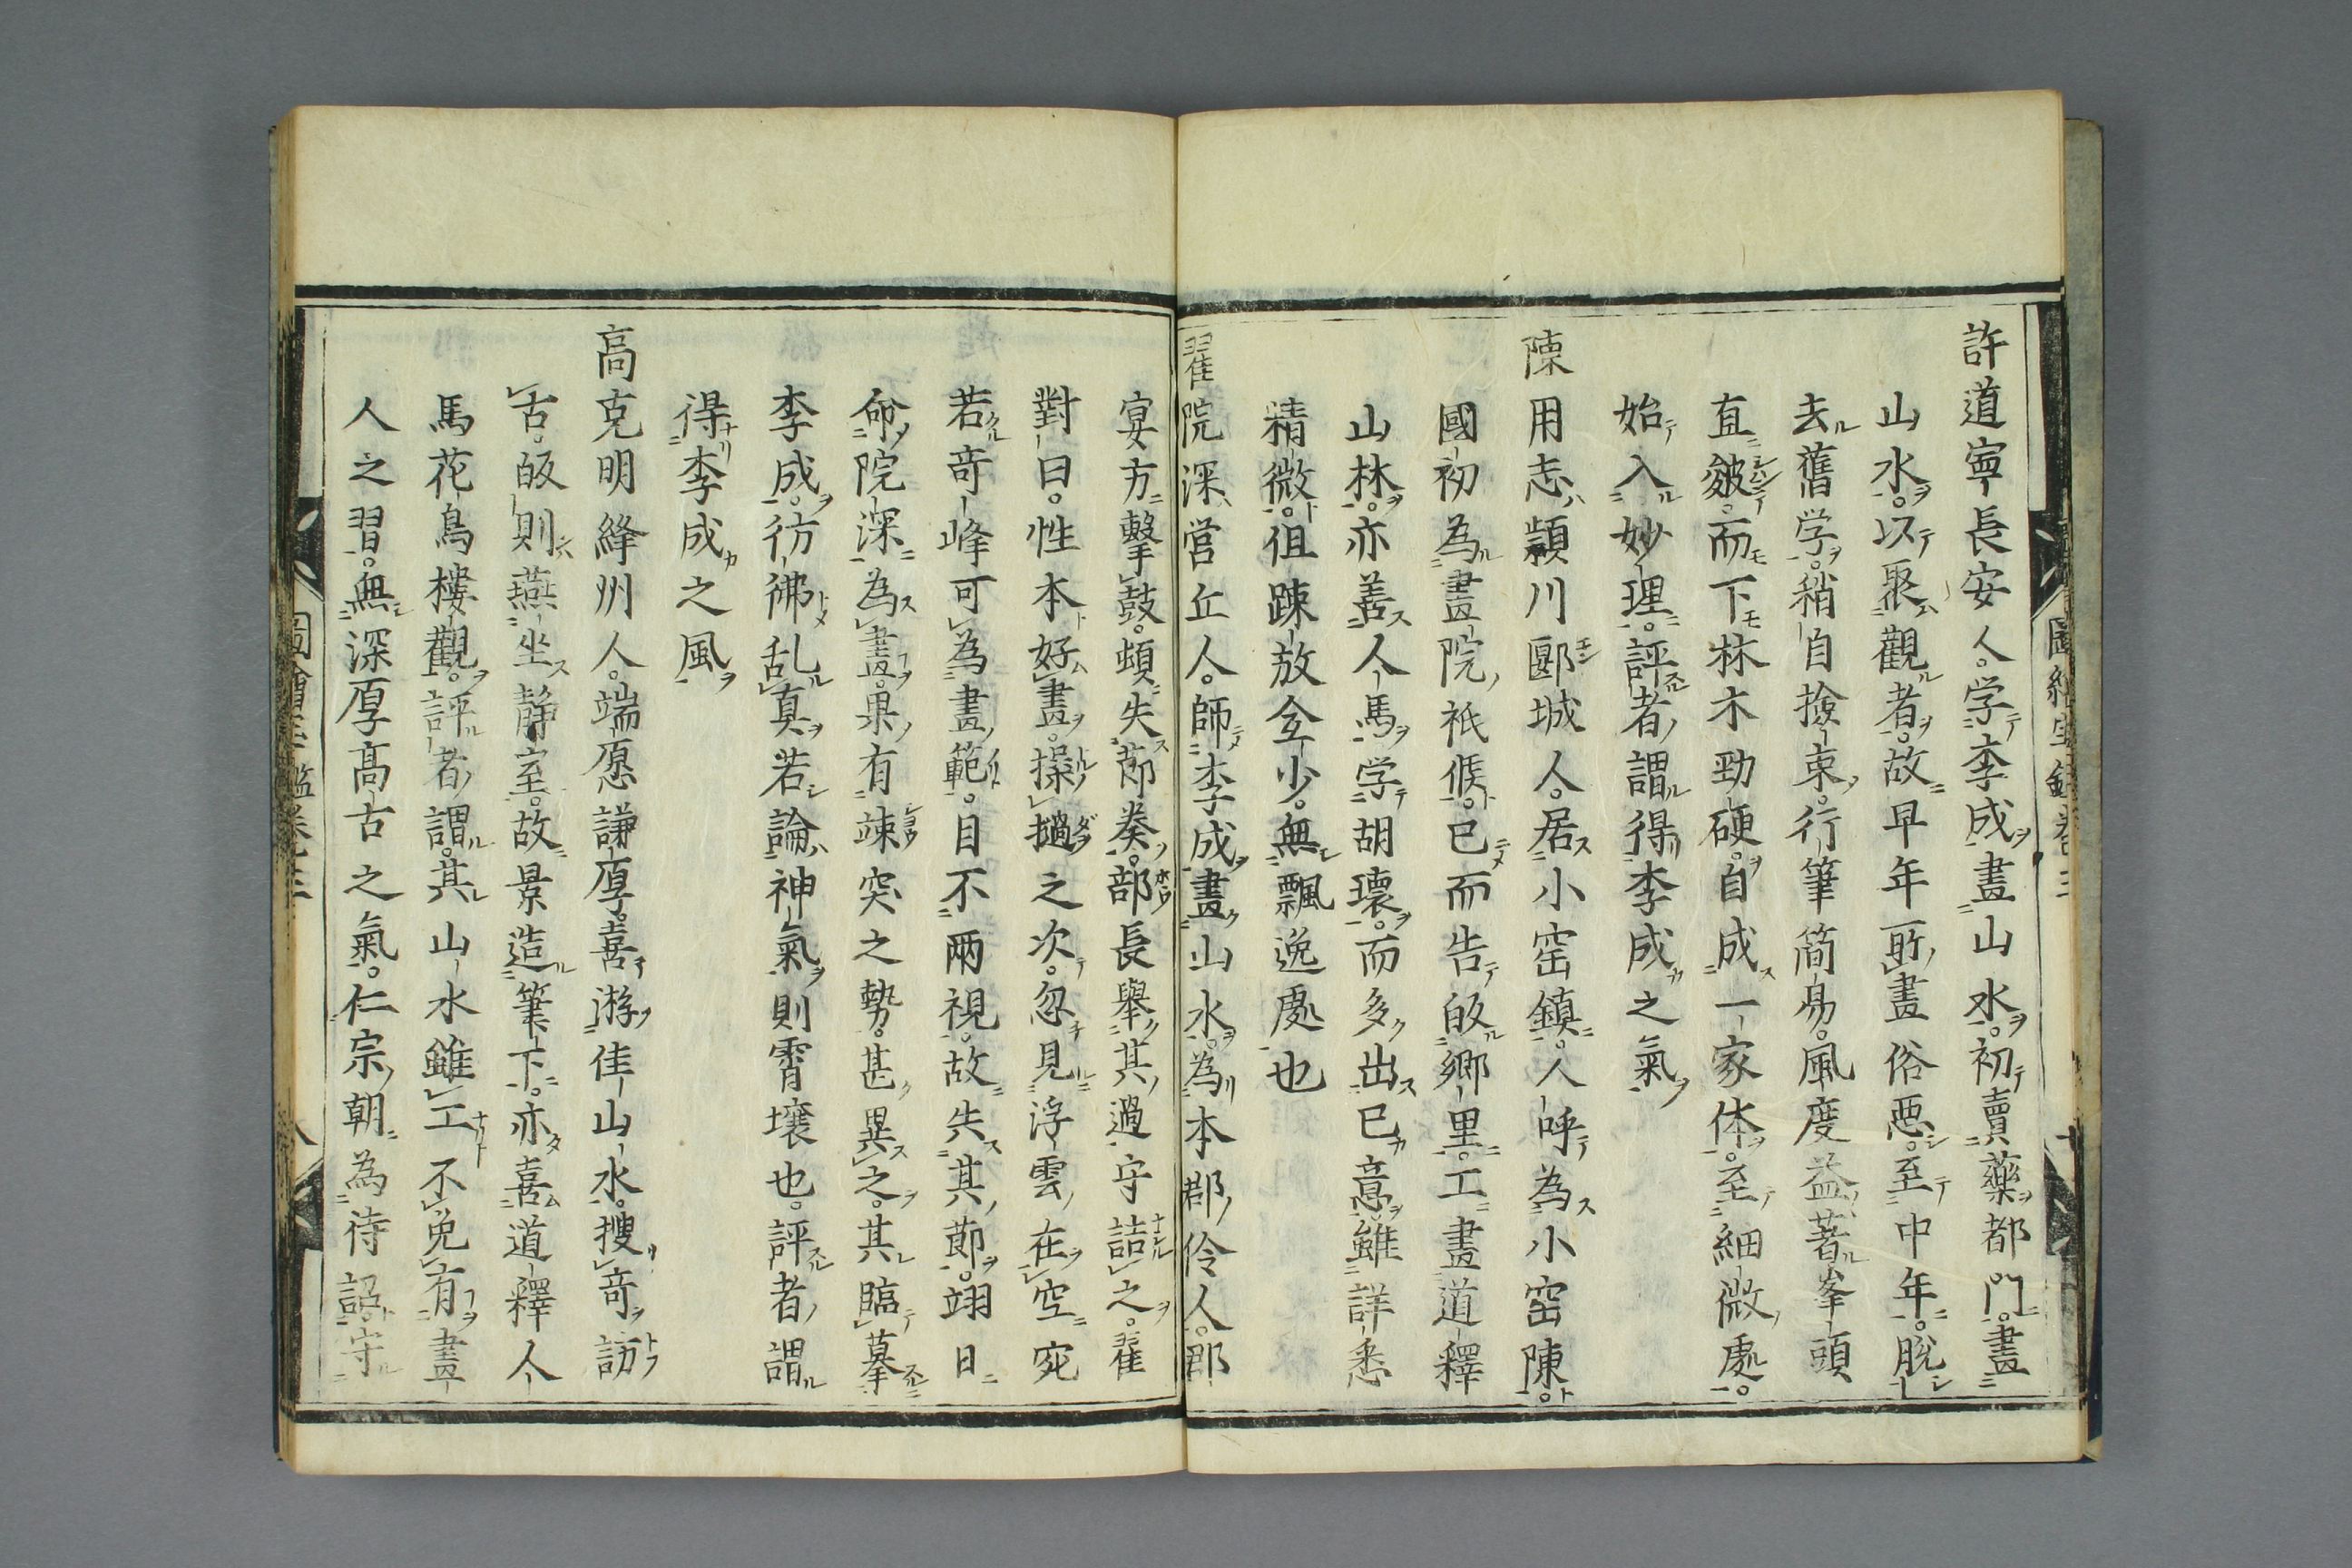 許道寧長安人。学李成畫山水。初賣藥都門。畫
山水。以聚觀者。故早年所畫俗惡。至中年。脫
去舊学。稍自撿束。行筆簡易。風度益著。峯頭
直皴。而下林木勁硬。自成一家体。至細微處。
始入妙理。評者謂得李成之氣
陳用志頴川郾城人。居小窑鎮。人呼為小窑陳。
國初為畫院祗候。已而告皈鄉里。工畫道釋
山林。亦善人馬学胡瓌。而多出己意。雖詳悉
精微。但踈放全少。無飄逸處也
翟院深営丘人。師李成畫山水。為本郡伶人。郡
宴方擊鼓。頻失莭奏。部長舉其過守詰之。翟
對曰。性本好畫。操撾之次。忽見浮雲在空宛
若竒峰可為畫範。目不兩視。故失其莭。翊日
命院深為畫。果有竦突之勢。甚異之。其臨摹
李成。彷彿乱真。若論神氣則霄壤也。評者謂
得李成之風
高克明絳州人。端愿謙厚。喜游佳山水。搜竒訪
古。皈則燕坐静室。故景造筆下。亦喜道釋人
馬花鳥樓觀。評者謂。其山水雖工不免有畫
人之習。無深厚高古之氣。仁宗朝為待詔守
圖繪宝鑑卷三
圖繪宝鑑卷之三